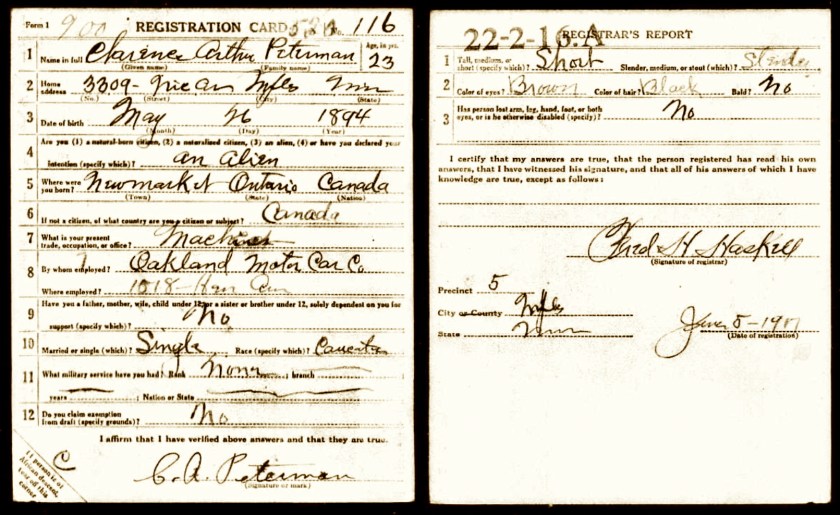 Form 1 900 REGISTRATION CARD No. 116
1 Name in full Clarence Arthur Peterman Age, in yrs. 23
(Given name) (Family name)
2 Home address 3309- Ave Mpls Minn
(No.) (Street) (City) (State)
3 Date of birth May 26 1894
(Month) (Day) (Year)
4 Are you (1) a natural-born citizen, (2) a naturalized citizen, (3) an alien, (4) or have you declared your
intention (specify which)? an Alien
5 Where were you born? Newmarket Ontario Canada
(Town) (State) (Nation)
6 If not a citizen, of what country are you a citizen or subject? Canada
7 What is your present trade, occupation, or office? Machinist
8 By whom employed? Oakland Motor Car Co
Where employed? 1018- Hen Ave
9 Have you a father, mother, wife, child under 12, or a sister or brother under 12, solely dependent on you for
support (specify which)? No
10 Married or single (which)? Single Race (specify which)?
11 What military service have you had? Rank None ; branch
years ; Nation or State
12 Do you claim exemption from draft (specify grounds)? No
I affirm that I have verified above answers and that they are true.
C. A. Peterman
(Signature or mark)
C
If person is of
African descent,
tear off this
corner
22-2-16. A REGISTRAR'S REPORT
1 Tall, medium, or short (specify which)? Short Slender, medium, or stout (which)? Slender
2 Color of eyes? Brown Color of hair? Black Bald? No
3 Has person lost arm, leg, hand, foot, or both
eyes, or is he otherwise disabled (specify)? No
I certify that my answers are true, that the person registered has read his own
answers, that I have witnessed his signature, and that all of his answers of which I have
knowledge are true, except as follows:
Fred H Haskell
(Signature of registrar)
Precinct 5
City or County Mpls
State Minn
June 5-1917
(Date of registration)